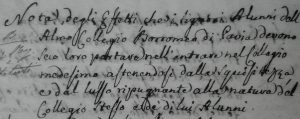 Nota degli Effetti che i Signori Alunni dell'
Almo Collegio Borromeo di Pavia devono
seco loro portare nell'entrare nel Collegio
medesimo astenendosi dalla
e dal lusso ripugnante alla natura del
Collegio stesso e de di lui Alunni